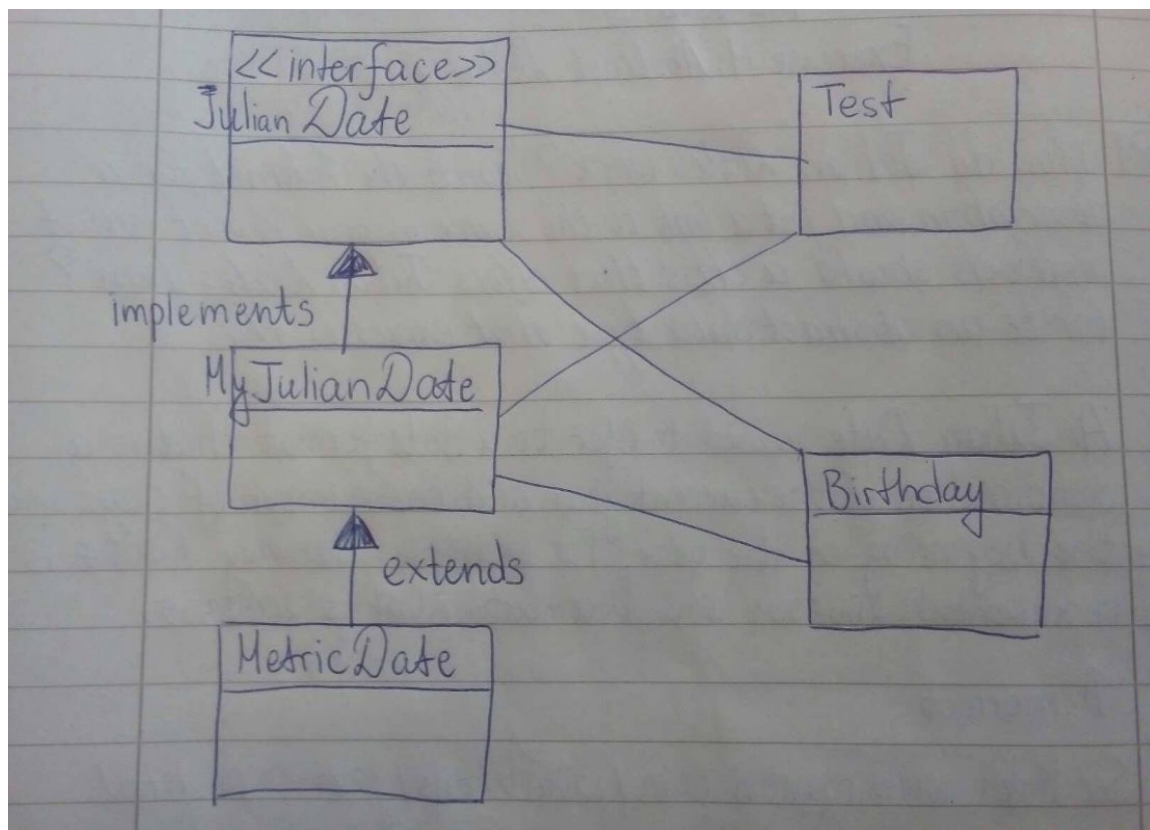 <<interface>>
Julian Date
Test
implements
MyJulianDate
Birthday
extends
MetricDate